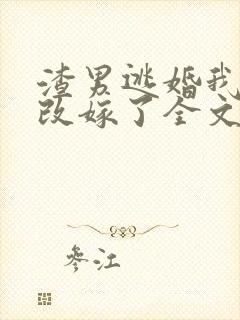 渣男逃婚我
改嫁了全文
参江